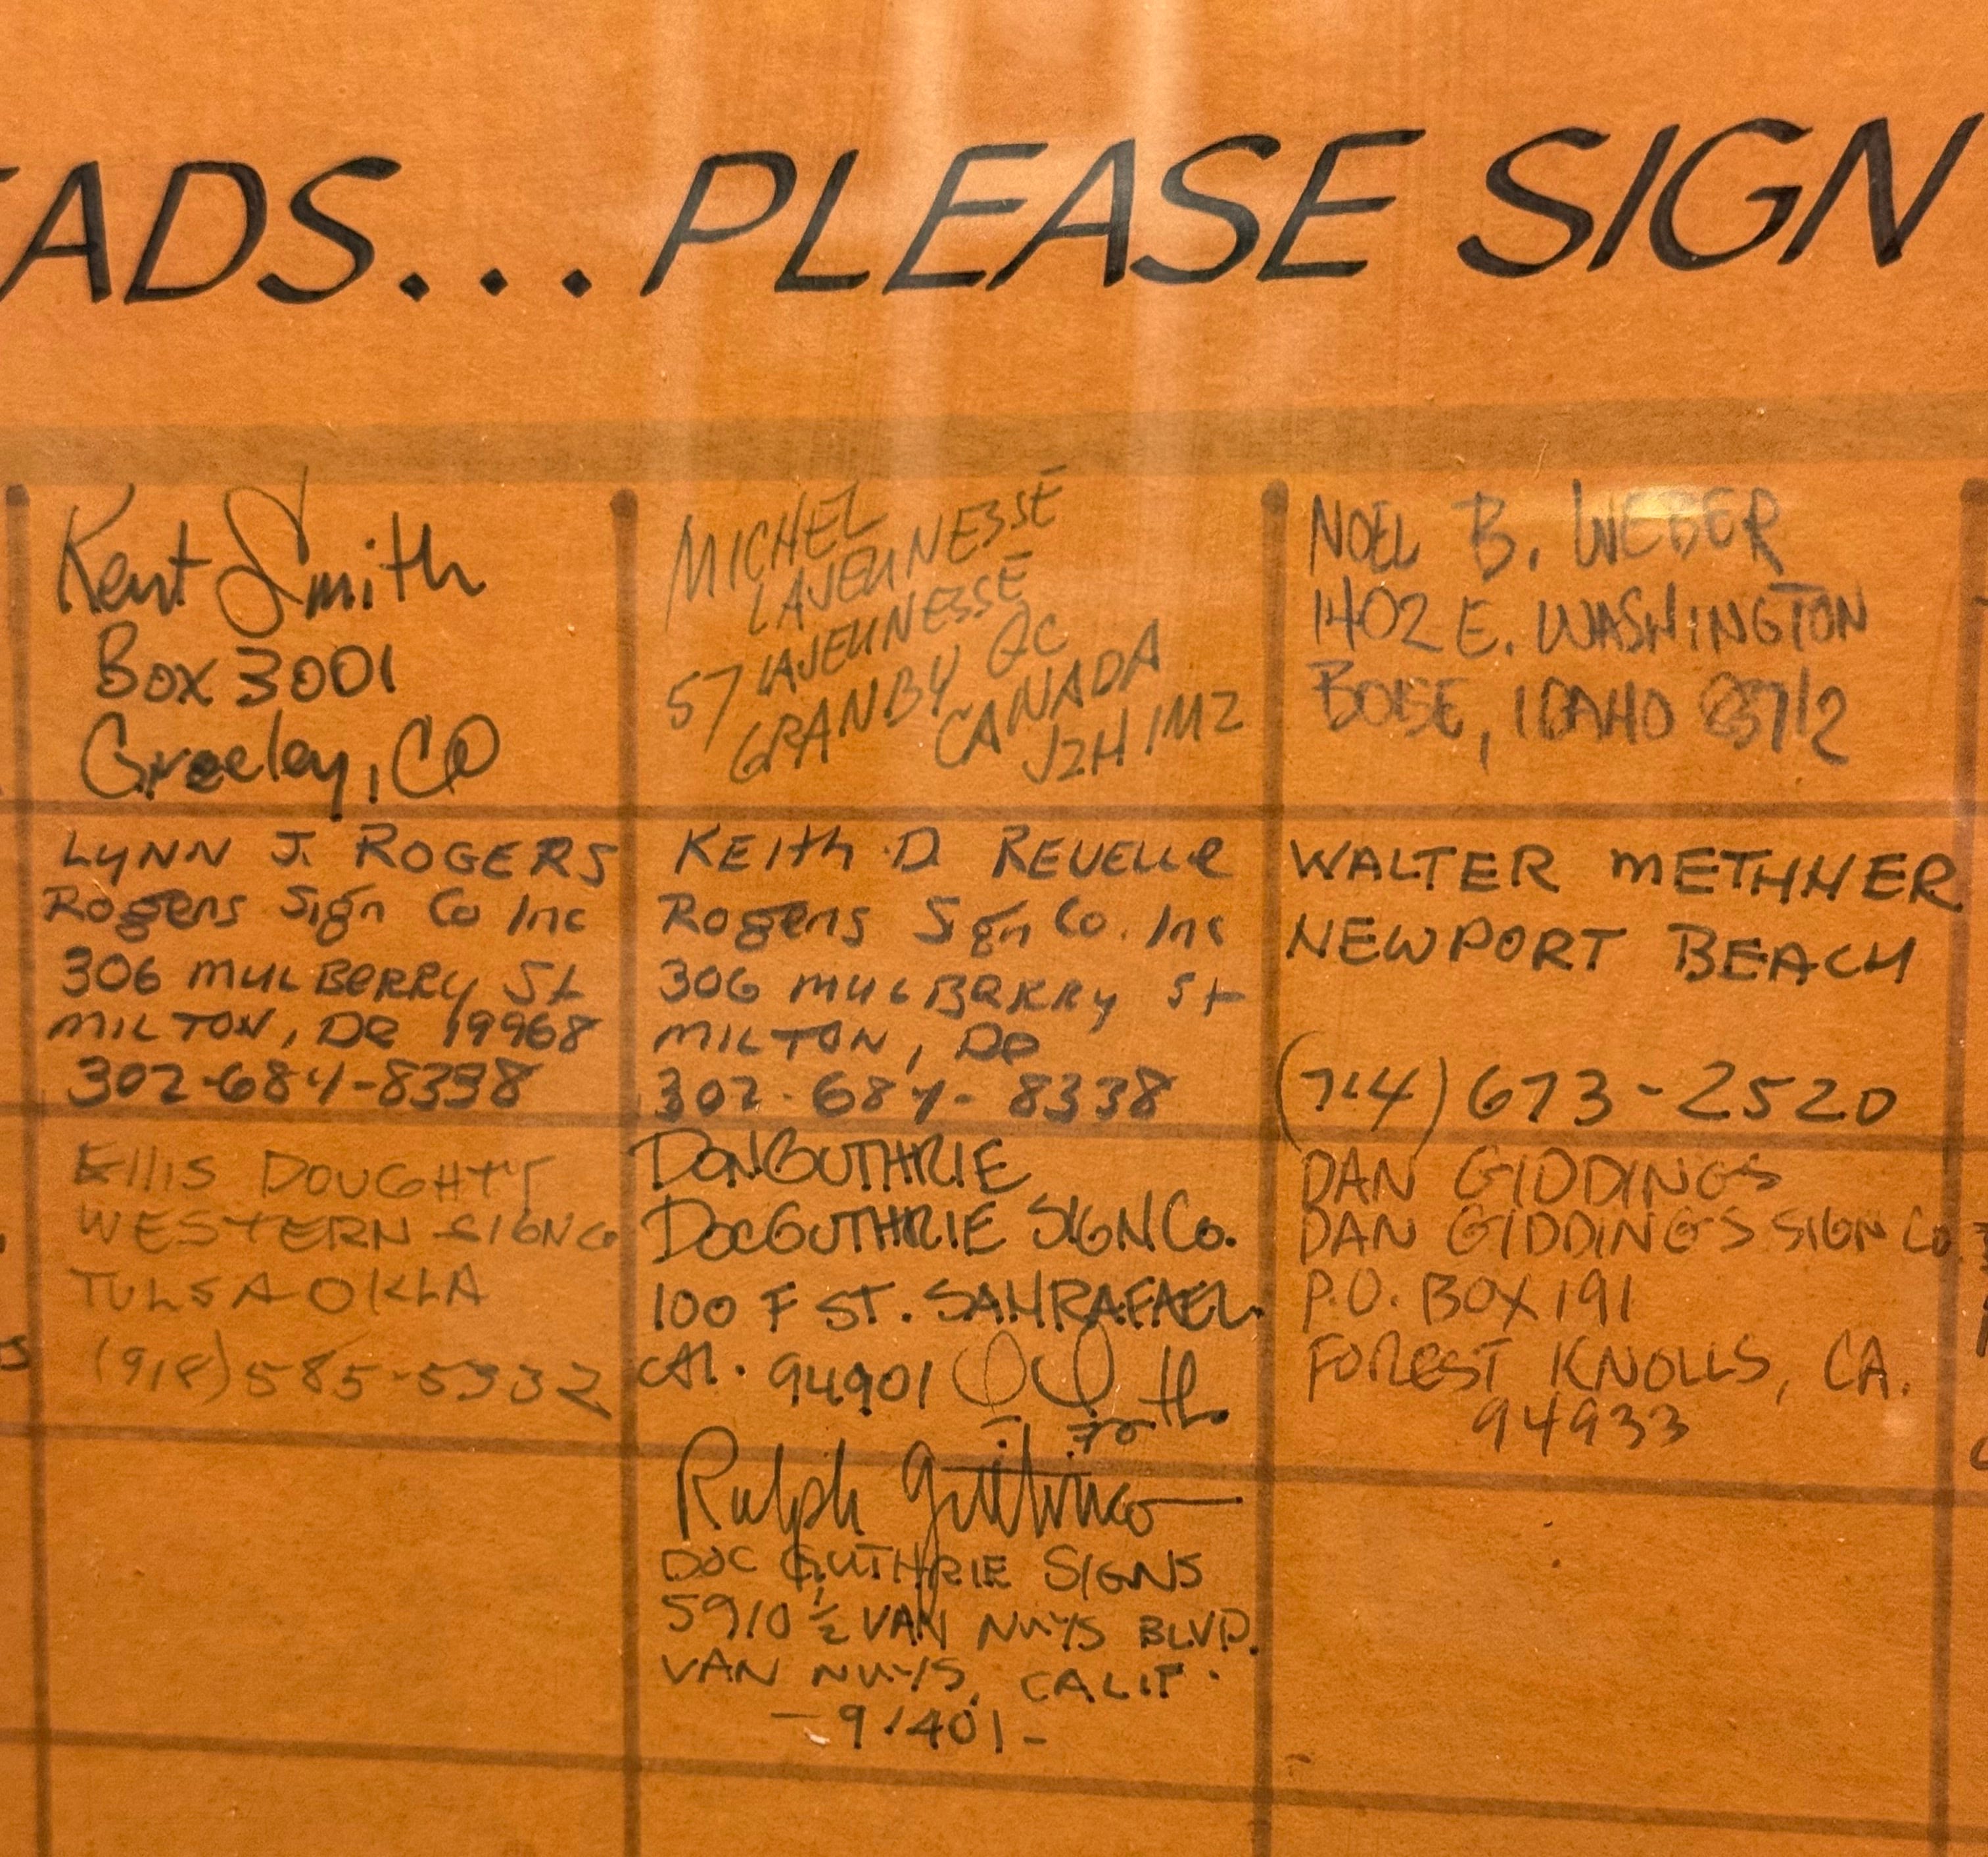 ADS... PLEASE SIGN
Kent Smith
Box 3001
Greeley, CO
MICHEL
LAJEUNESSE
57 LAJEUNESSE
GRANBY QC
CANADA
J2H 1M2
NOEL B. WEBER
1402 E. WASHINGTON
BOISE, IDAHO 83712
LYNN J. ROGERS
Rogers Sign Co Inc
306 MULBERRY St
MILTON, De 19968
302-684-8338
KEith D REVELLe
Rogers Sign Co. Inc
306 MULBERRY St
MILTON, De
302-684-8338
WALTER METHNER
NEWPORT BEACH
(714) 673-2520
Ellis DOUGHTY
WESTERN SIGN Co
TULSA OKLA
(918) 585-5332
DON GUTHRIE
DOC GUTHRIE SIGN Co.
100 F ST. SAN RAFAEL
CAL. 94901
DAN GIDDINGS
DAN GIDDINGS SIGN Co
P.O. BOX 191
FOREST KNOLLS, CA.
94933
Ralph
DOC GUTHRIE SIGNS
5910 ½ VAN NUYS BLVD.
VAN NUYS, CALIF.
-91401-